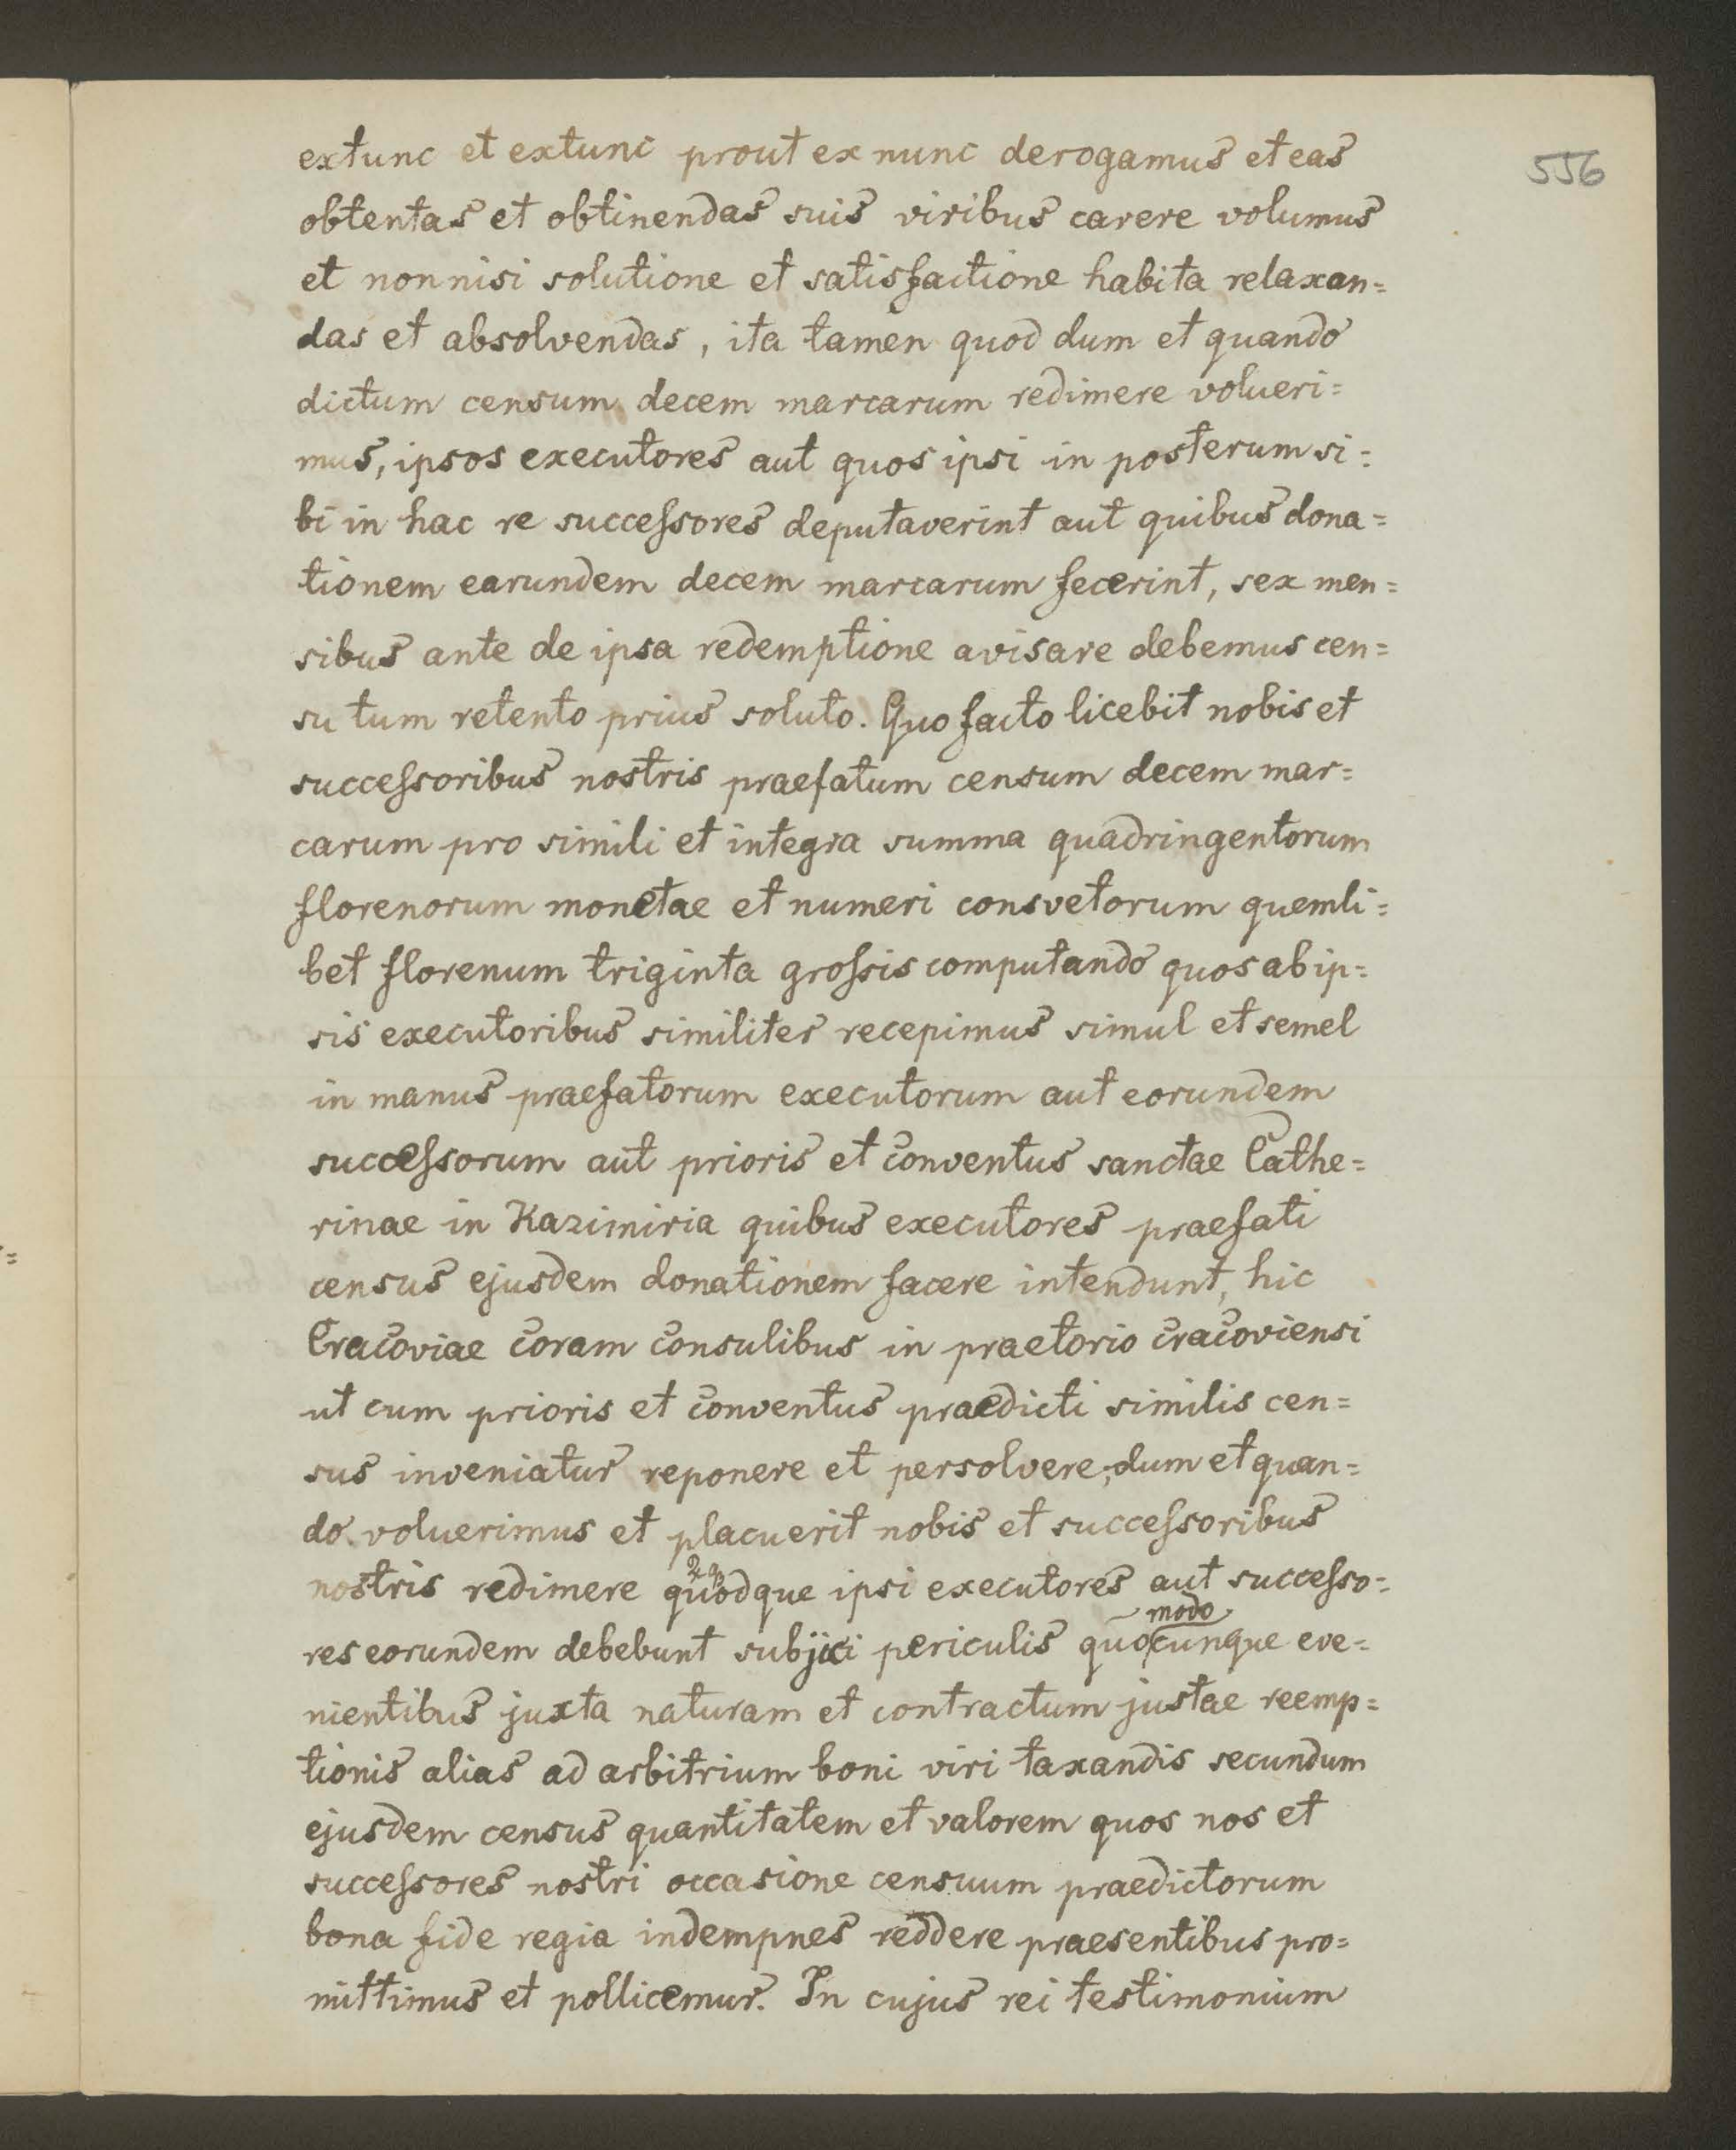 556
extunc et extunc prout ex nunc derogamus et eas
obtentas et obtinendas suis viribus carere volumus
et nonnisi solutione et satisfactione habita relaxan=
das et absolvendas, ita tamen quod dum et quando
dictum censum decem marcarum redimere volueri=
mus, ipsos executores aut quos ipsi in posterum si=
bi in hac re successores deputaverint aut quibus dona=
tionem earundem decem marcarum fecerint, sex men=
sibus ante de ipsa redemptione avisare debemus cen=
su tum retento prius soluto. Quo facto licebit nobis et
successoribus nostris praefatum censum decem mar=
carum pro simili et integra summa quadringentorum
florenorum monetae et numeri consvetorum quemli=
bet florenum triginta grossis computando quos ab ip=
sis executoribus similiter recepimus simul et semel
in manus praefatorum executorum aut eorundem
successorum aut prioris et conventus sanctae Cathe=
rinae in Kazimiria quibus executores praefati
census ejusdem donationem facere intendunt, hic
Cracoviae coram consulibus in praetorio cracoviensi
ut cum prioris et conventus praedicti similis cen=
sus inveniatur reponere et persolvere, dum et quan=
do voluerimus et placuerit nobis et successoribus
nostris redimere quodque ipsi executores aut successo=
modo
res eorundem debebunt subjici periculis quocunque eve=
nientibus juxta naturam et contractum justae reemp=
tionis alias ad arbitrium boni viri taxandis secundum
ejusdem census quantitatem et valorem quos nos et
successores nostri occasione censuum praedictorum
bona fide regia indempnes reddere praesentibus pro=
mittimus et pollicemur. In cujus rei testimonium